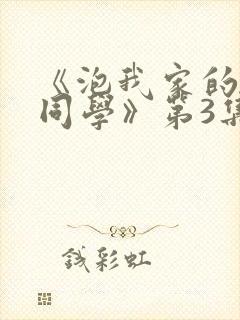 《泡我家的
同學》第3集
钱彩虹